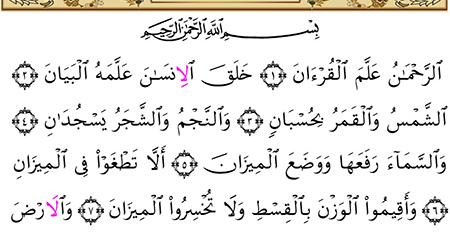 بِسْمِ اللَّهِ الرَّحْمَٰنِ الرَّحِيمِ
الرَّحْمَٰنُ عَلَّمَ الْقُرْءَانَ ﴿١﴾ خَلَقَ الِانسَٰنَ عَلَّمَهُ الْبَيَانَ ﴿٢﴾
الشَّمْسُ وَالْقَمَرُ بِحُسْبَانٍ ﴿٣﴾ وَالنَّجْمُ وَالشَّجَرُ يَسْجُدَانِ ﴿٤﴾
وَالسَّمَآءَ رَفَعَهَا وَوَضَعَ الْمِيزَانَ ﴿٥﴾ أَلَّا تَطْغَوْا۟ فِى الْمِيزَانِ
﴿٦﴾ وَأَقِيمُوا۟ الْوَزْنَ بِالْقِسْطِ وَلَا تُخْسِرُوا۟ الْمِيزَانَ ﴿٧﴾ وَالَارْضَ